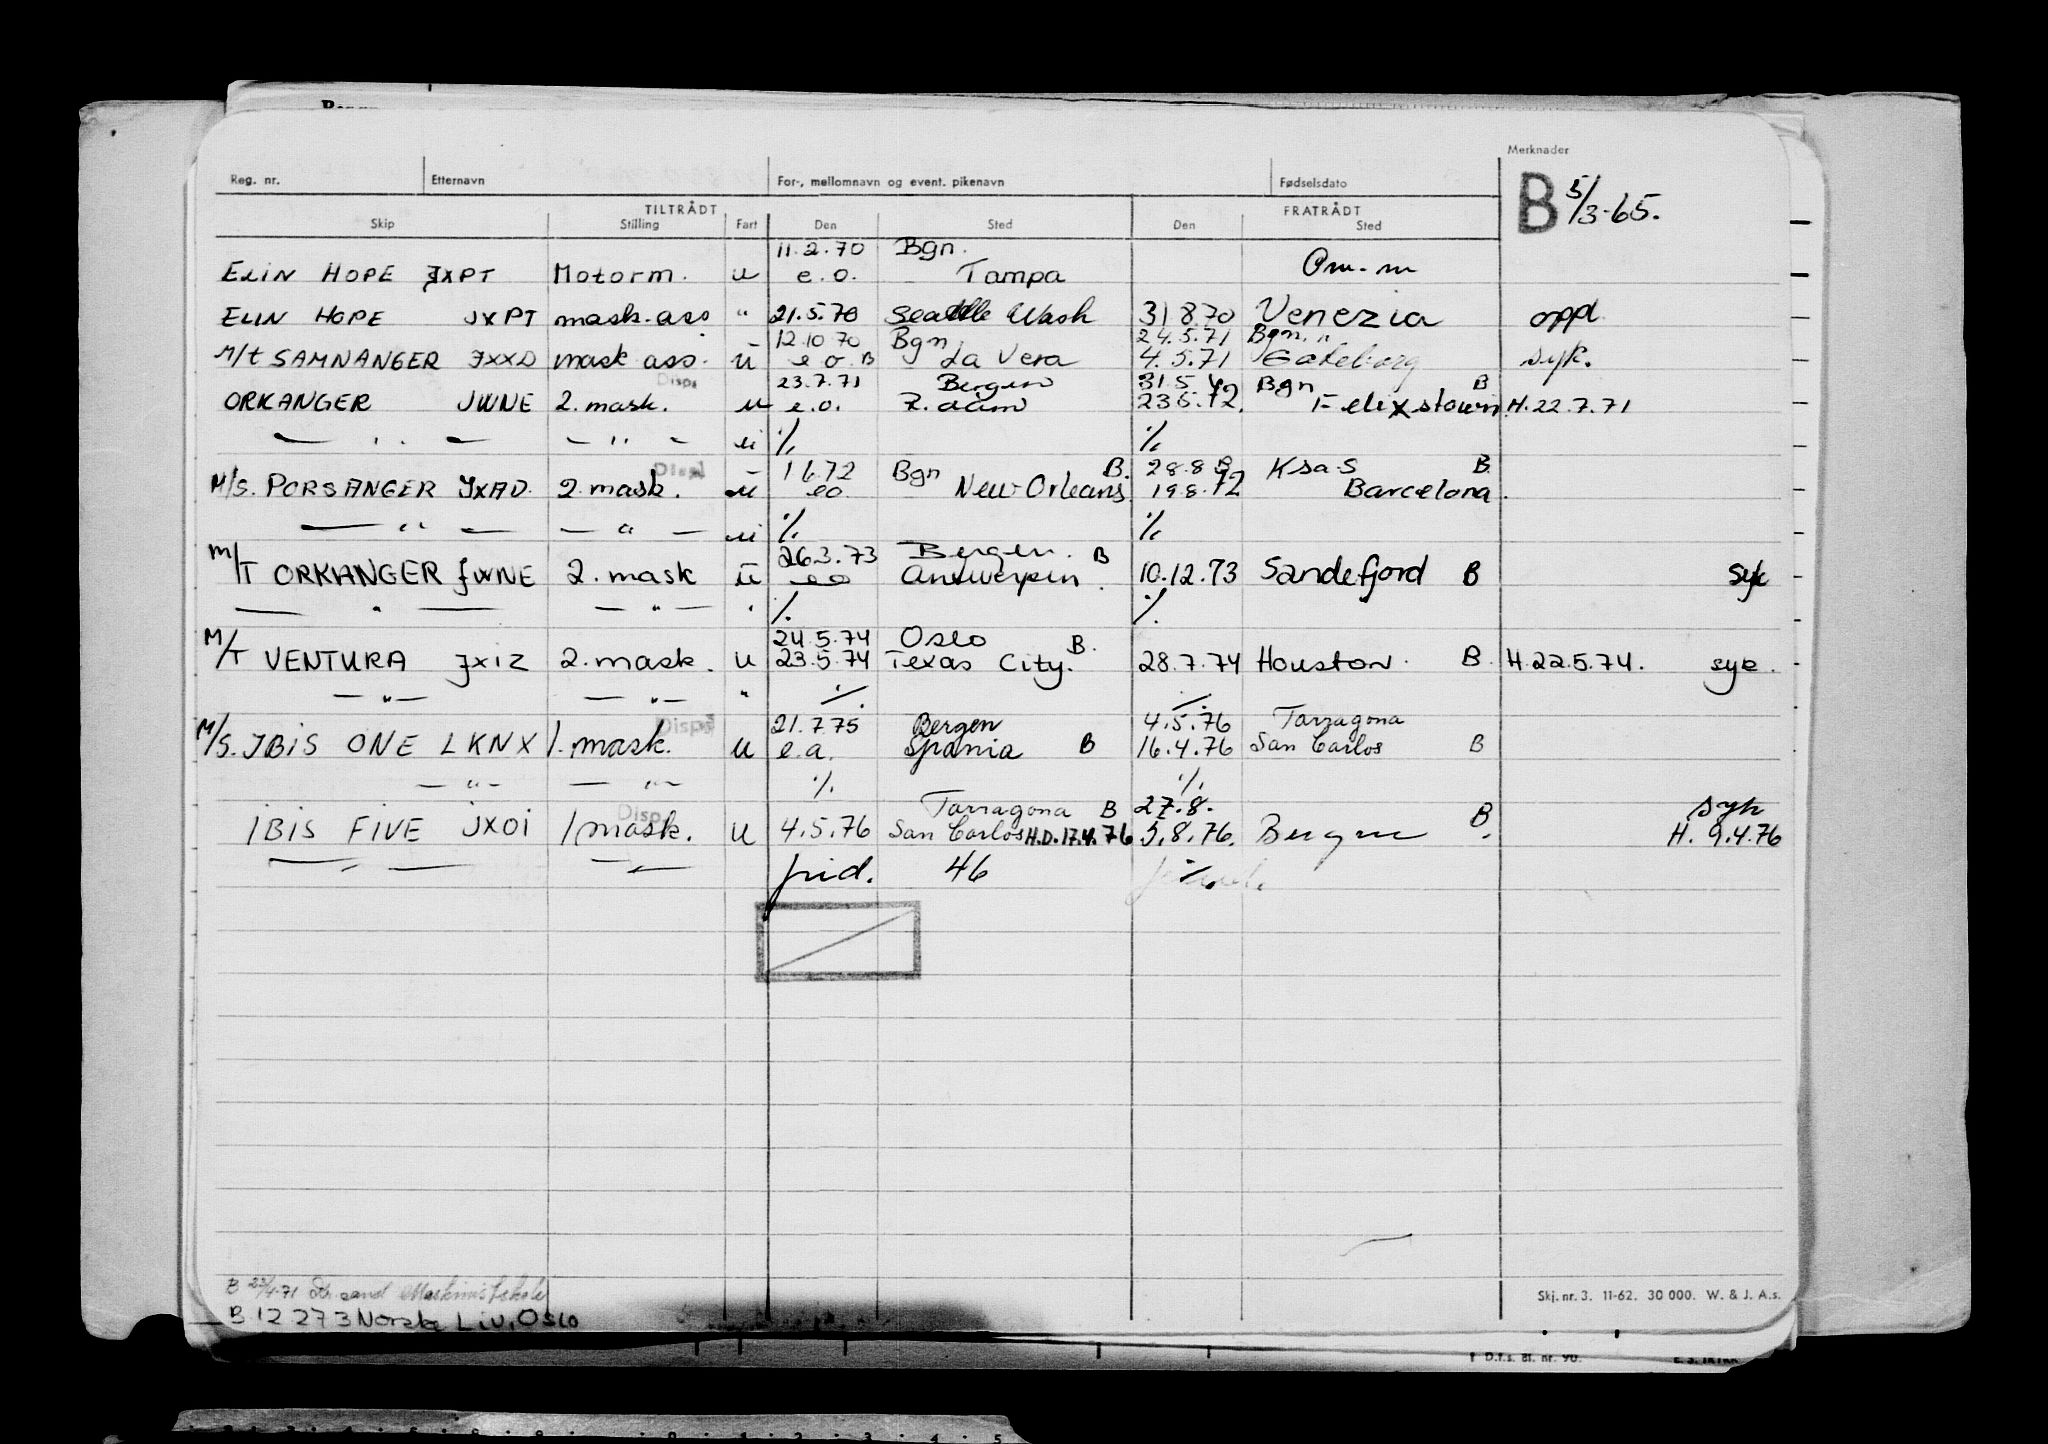 Merknader
Reg. nr. Etternavn For-, mellomnavn og event. pikenavn Fødselsdato
B 5/3-65.
TILTRÅDT FRATRÅDT
Skip Stilling Fart Den Sted Den Sted
11.2.70 Bgn.
ELIN HOPE JXPT Motorm. u e.o. Tampa
ELIN HOPE JXPT mask.ass " 21.5.70 Seattle Wash 31 8.70 Venezia oppl.
12.10 70 Bgn 24.5.71 Bgn. "
M/t SAMNANGER JXXD mask ass. u e o. B La Vera 4.5.71 Göteborg syk.
Disps 23.7.71 Bergen 31.5 Bgn B
ORKANGER JWNE 2. mask. u e.o. R.dam 23 5.72. Felixstown H.22.7.71
— " — — " — u ·/. ·/.
Disp 1 6 72 Bgn B. 28.8 Ksa.S B.
M/S. PORSANGER JXAD. 2. mask. u eo New Orleans 19.8.72 Barcelona.
— " — — " — u ·/. ·/.
26.3.73 Bergen. B
M/T ORKANGER JWNE 2. mask u eo Antwerpen. 10.12.73 Sandefjord B syk
— " — — " — ' ·/. ·/.
24.5.74 Oslo B.
M/T VENTURA JXIZ 2. mask. u 23.5.74 Texas City. 28.7.74 Houston. B. H.22.5.74. syk.
— " — — " — " ·/. ·/.
Disps 21.7.75 Bergen 4.5.76 Tarragona
M/S. IBIS ONE LKNX 1. mask. u e.a. Spania B 16.4.76 San Carlos B
— " — — " — ·/. ·/.
Disp Tarragona B 27.8. B syk
IBIS FIVE JXOI 1 mask. u 4.5.76 San Carlos H.D.17.4.76 5.8.76. Bergen . H. 9.4.76
— " — — " — frid. 46 ·/.
B 23/4-71 Maskinistskole
B 12 2 73 Norske Liv, Oslo
Skj. nr. 3. 11-62. 30 000. W. & J. A.s.
D.f.s. Bl. nr. 90.